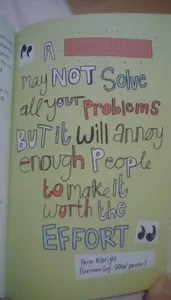 " A
may NOT Solve
all your Problems
BUT it Will annoy
enough People
to make it
worth the
EFFORT "
Herm Albright